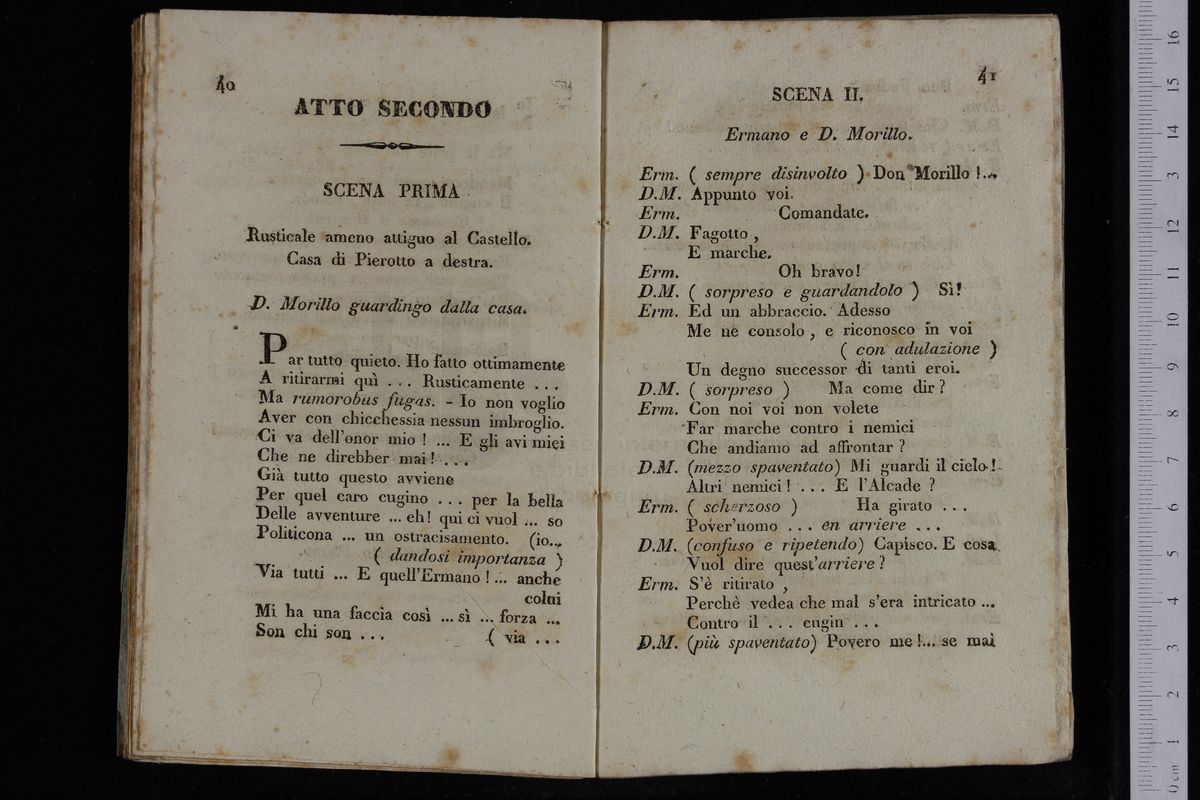 40
ATTO SECONDO
SCENA PRIMA
Rusticale ameno attiguo al Castello.
Casa di Pierotto a destra.
D. Morillo guardingo dalla casa.
Par tutto quieto. Ho fatto ottimamente
A ritirarmi quì ... Rusticamente ...
Ma rumorobus fugas. - Io non voglio
Aver con chicchessia nessun imbroglio.
Ci va dell'onor mio ! ... E gli avi miei
Che ne direbber mai! ...
Già tutto questo avviene
Per quel caro cugino ... per la bella
Delle avventure ... eh! qui ci vuol ... so
Politicona ... un ostracisamento. (io...
( dandosi importanza )
Via tutti ... E quell'Ermano ! ... anche
colui
Mi ha una faccia così ... sì ... forza ...
Son chi son ... ( via ...
41
SCENA II.
Ermano e D. Morillo.
Erm. ( sempre disinvolto ) Don Morillo !...
D.M. Appunto voi.
Erm. Comandate.
D.M. Fagotto ,
E marche.
Erm. Oh bravo!
D.M. ( sorpreso e guardandolo ) Sì!
Erm. Ed un abbraccio. Adesso
Me ne consolo , e riconosco in voi
( con adulazione )
Un degno successor di tanti eroi.
D.M. ( sorpreso ) Ma come dir ?
Erm. Con noi voi non volete
Far marche contro i nemici
Che andiamo ad affrontar ?
D.M. (mezzo spaventato) Mi guardi il cielo!
Altri nemici ! ... E l'Alcade ?
Erm. ( scherzoso ) Ha girato ...
Pover'uomo ... en arriere ...
D.M. (confuso e ripetendo) Capisco. E cosa
Vuol dire quest'arriere ?
Erm. S'è ritirato ,
Perchè vedea che mal s'era intricato ...
Contro il ... eugin ...
D.M. (più spaventato) Povero me !... se mai
0 cm 1 2 3 4 5 6 7 8 9 10 11 12 13 14 15 16